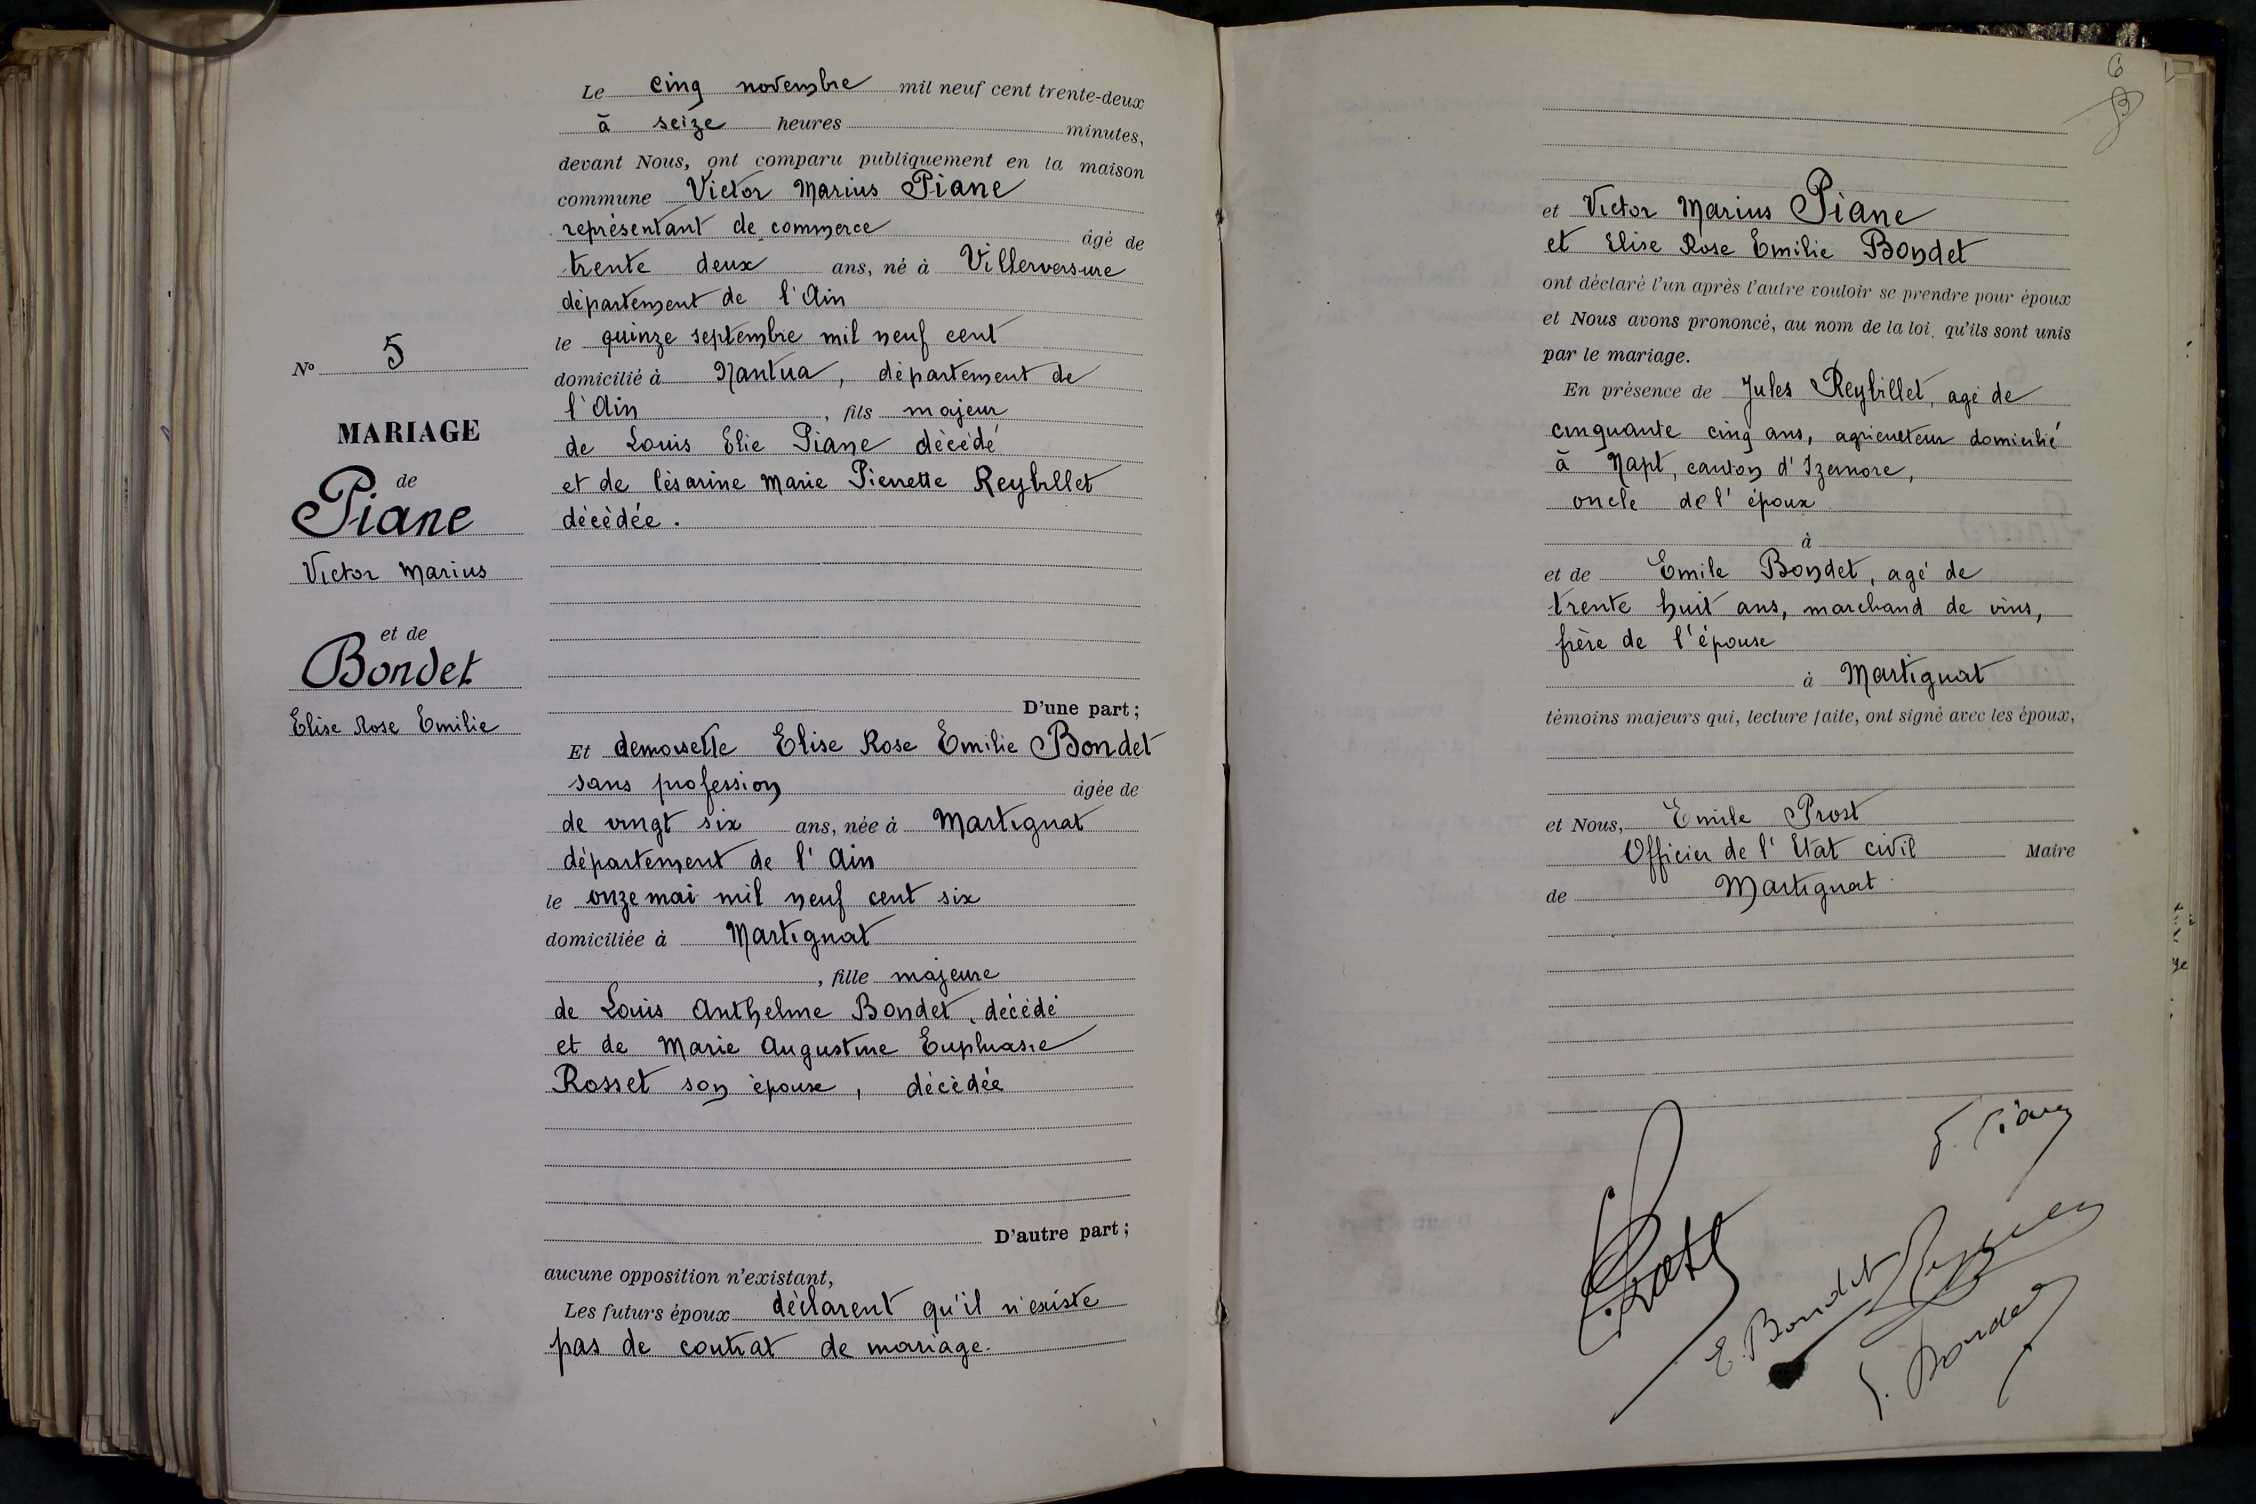 Nº 5
MARIAGE
de
Piane
Victor Marius
et de
Bondet
Elise Rose Emilie
Le cinq novembre mil neuf cent trente-deux
à seize heures minutes,
devant Nous, ont comparu publiquement en la maison
commune Victor Marius Piane
représentant de commerce âgé de
trente deux ans, né à Villerversure
département de l'Ain
le quinze septembre mil neuf cent
domicilié à Nantua, département de
l'Ain, fils majeur
de Louis Elie Piane décédé
et de Césarine Marie Pierrette Reybillet
décédée.
D'une part;
Et demoiselle Elise Rose Emilie Bondet
sans profession âgée de
de vingt six ans, née à Martignat
département de l'Ain
le onze mai mil neuf cent six
domiciliée à Martignat
, fille majeure
de Louis Anthelme Bondet, décédé
et de Marie Augustine Euphrasie
Rosset son épouse, décédée
D'autre part;
aucune opposition n'existant,
Les futurs époux déclarent qu'il n'existe
pas de contrat de mariage.
6
et Victor Marius Piane
et Elise Rose Emilie Bondet
ont déclaré l'un après l'autre vouloir se prendre pour époux
et Nous avons prononcé, au nom de la loi, qu'ils sont unis
par le mariage.
En présence de Jules Reybillet, agé de
cinquante cinq ans, agriculteur domicilié
à Napt, canton d'Izernore,
oncle de l'époux
à
et de Emile Bondet, agé de
trente huit ans, marchand de vins,
frère de l'épouse
à Martignat
témoins majeurs qui, lecture faite, ont signé avec les époux,
et Nous, Emile Prost
Officier de l'Etat civil Maire
de Martignat
E. Prost
E. Bondet